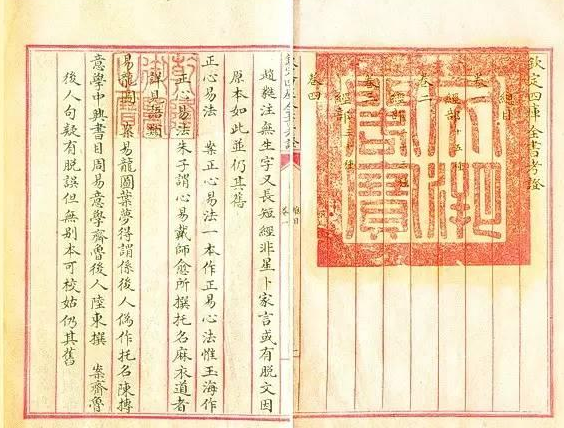 欽定四庫全書考證
總目
卷一
經部
卷二
經部
卷三
經部
卷四
趙蕤注無生字又長短經非星卜家言或有脫文因
原本如此並仍其舊
正心易法 案正心易法一本作正易心法惟玉海作
正心易法朱子謂心易戴師愈所撰托名麻衣道者
詳見語類
易龍圖 案易龍圖葉夢得謂係後人偽作托名陳摶
意學中興書目周易意學齊魯後人陸東撰 案齊魯
後人句疑有脫誤但無別本可校姑仍其舊